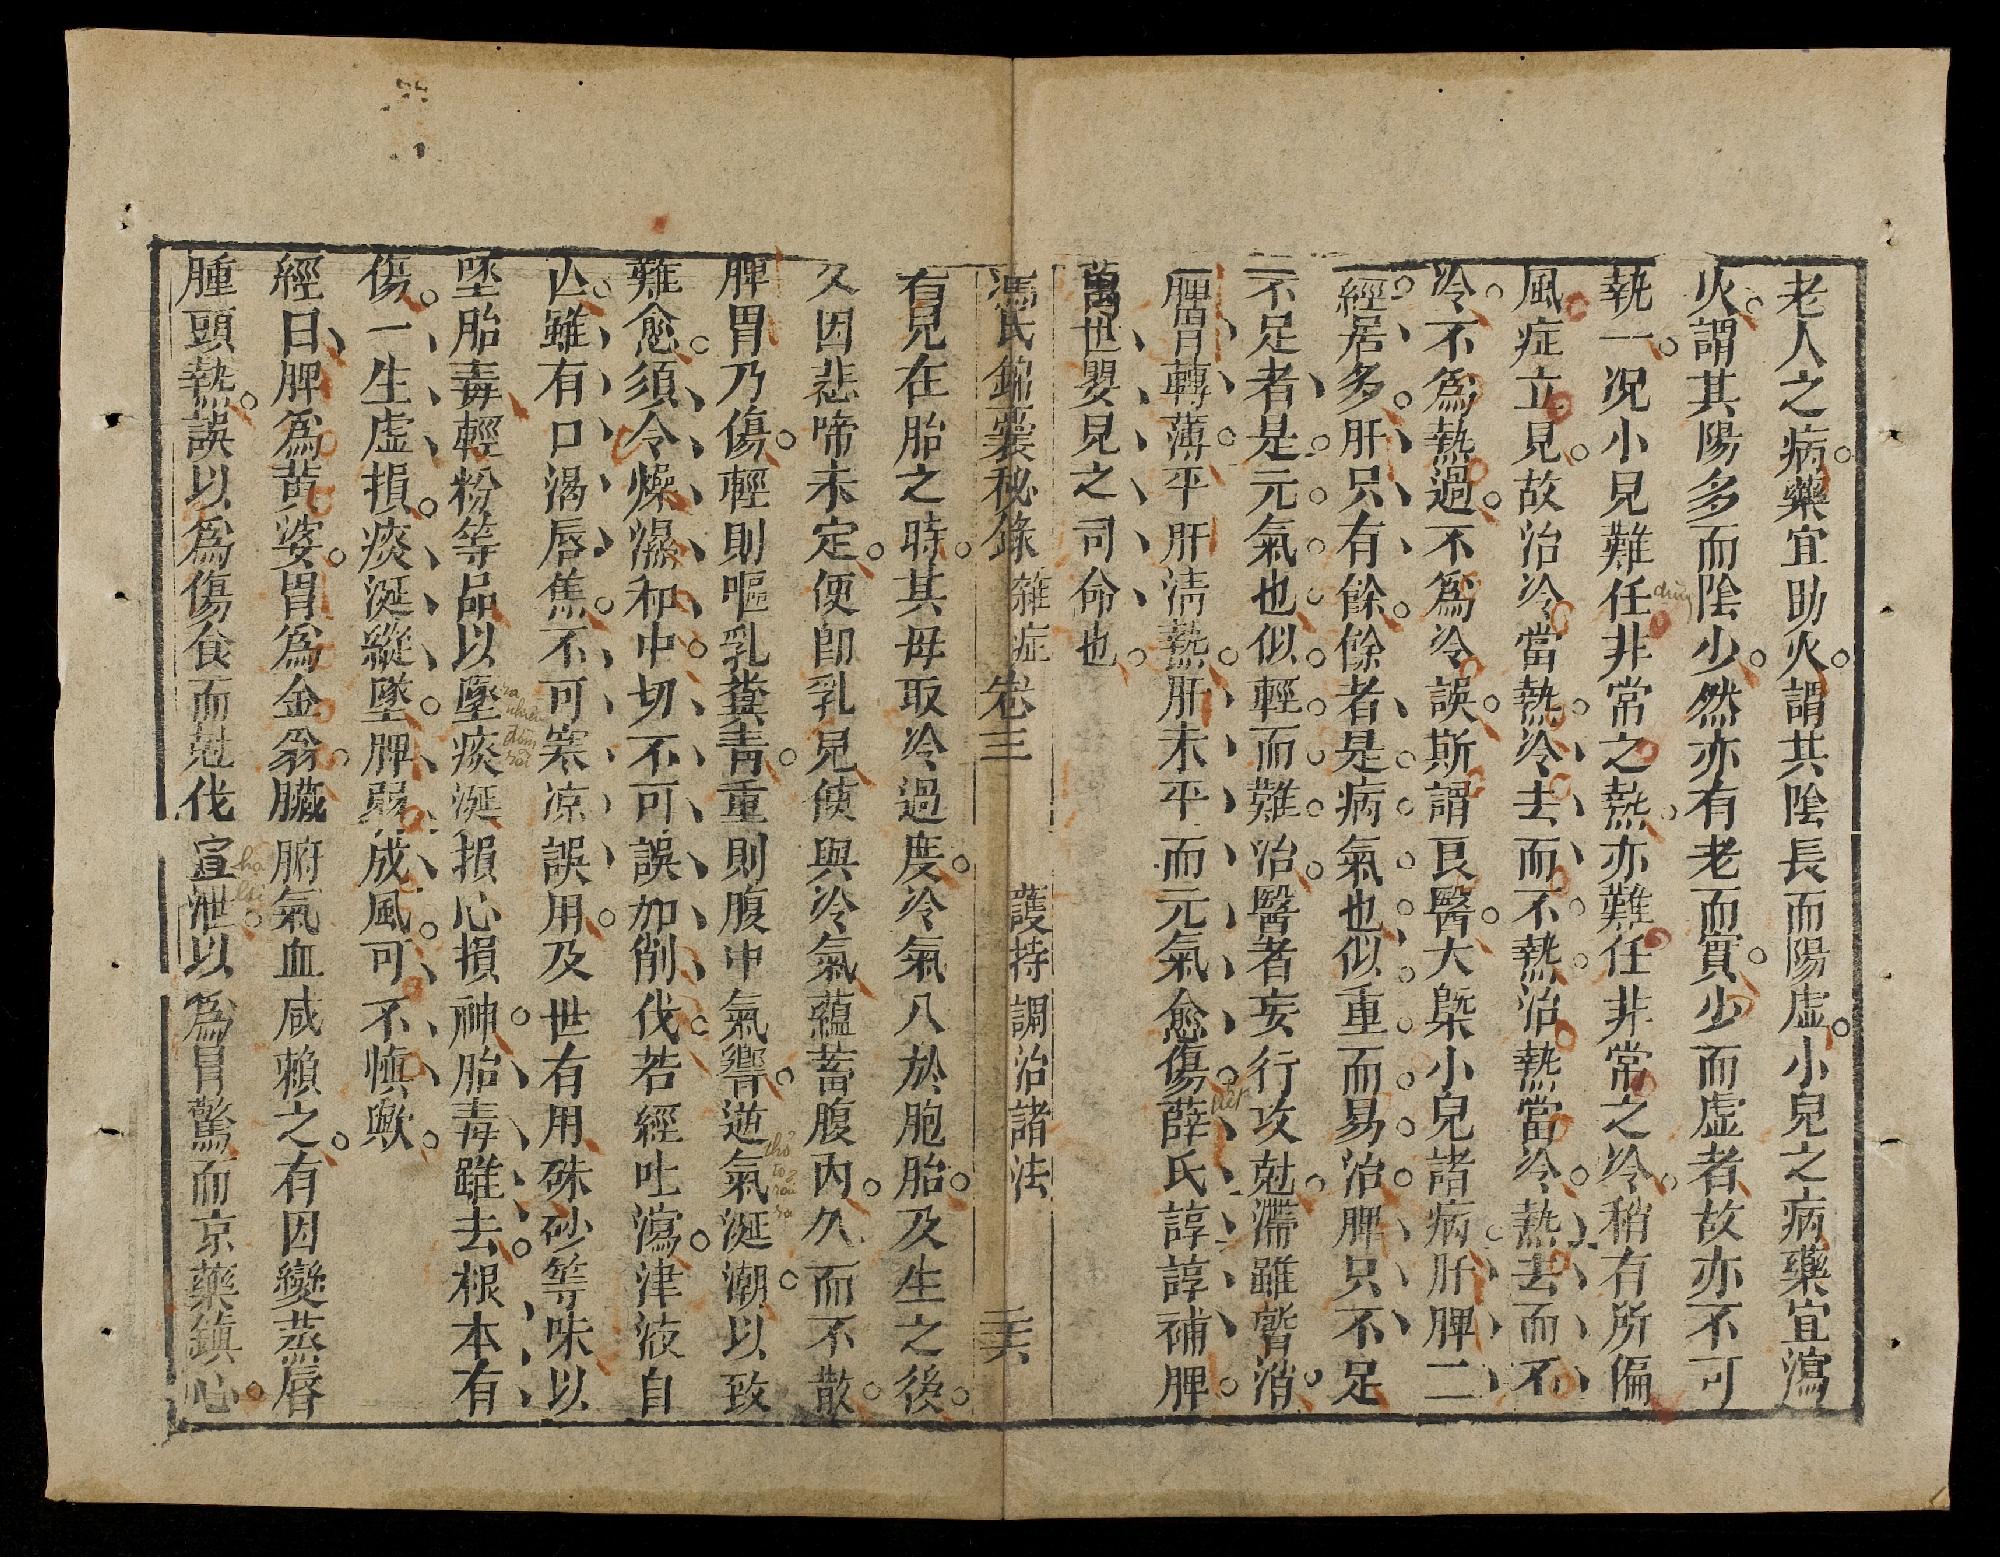 老人之病藥宜助火謂其陰長而陽虛小兒之病藥宜瀉
火謂其陽多而陰少然亦有老而實少而虛者故亦不可
執一况小兒難任非常之熱亦難任非常之冷稍有所偏
風症立見故治冷當熱冷去而不熱治熱當冷熱去而不
冷不爲熱過不爲冷誤斯謂良醫大槩小兒諸病肝脾二
經居多肝只有餘餘者是病氣也似重而易治脾只不足
不足者是元氣也似輕而難治醫者妄行攻尅滯雖暫消
脾胃轉薄平肝清熱肝未平而元氣愈傷薛氏諄諄補脾
萬世嬰兒之司命也
馮氏錦囊秘錄 雜症 卷三 護持調治諸法 二六
有兒在胎之時其母取冷過度冷氣入於胞胎及生之後
又因悲啼未定便卽乳兒使與冷氣蘊蓄腹內久而不散
脾胃乃傷輕則嘔乳糞青重則腹中氣響逆氣涎潮以致
難愈須令燥濕和中切不可誤加削伐若經吐瀉津液自
亾雖有口渴唇焦不可寒凉誤用及世有用硃砂等味以
墜胎毒輕粉等品以墜痰涎損心損神胎毒雖去根本有
傷一生虛損痰涎縱墜脾弱成風可不愼歟
經曰脾爲黃婆胃爲金翁臟腑氣血咸賴之有因變蒸唇
腫頭熱誤以爲傷食而尅伐宣泄以爲胃驚而京藥鎮心
dùng
tiết
thổ
ra nhiều đờm rồi